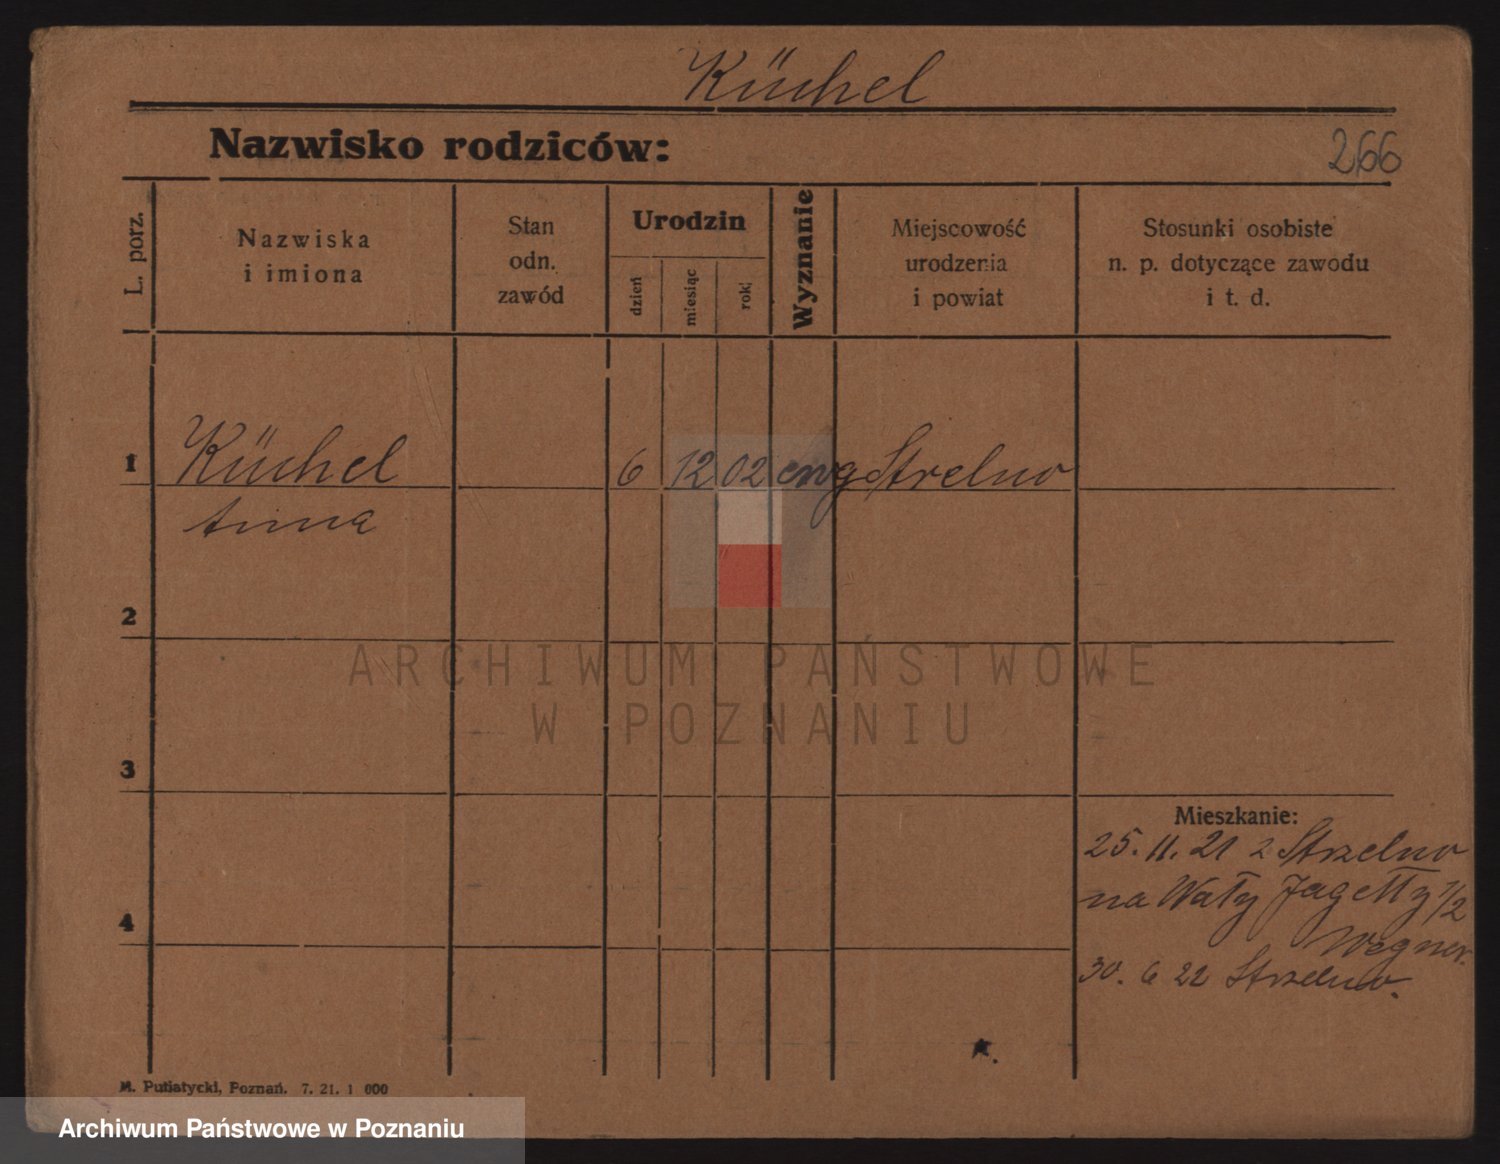 Küchel
Nazwisko rodziców:
266
L. porz.
Nazwiska
i imiona
Stan
odn.
zawód
Urodzin
dzień
miesiąc
rok
Wyznanie
Miejscowość
urodzenia
i powiat
Stosunki osobiste
n. p. dotyczące zawodu
i t. d.
1
Küchel
6
12
02
ewg
Strelno
Anna
2
ARCHIWUM PAŃSTWOWE
W POZNANIU
3
Mieszkanie:
25. 11. 21 z Strzelno
na Wały Jagiełły 1/2
Wegner.
4
30. 6 22 Strzelno.
M. Putiatycki, Poznań. 7. 21. 1 000
Archiwum Państwowe w Poznaniu